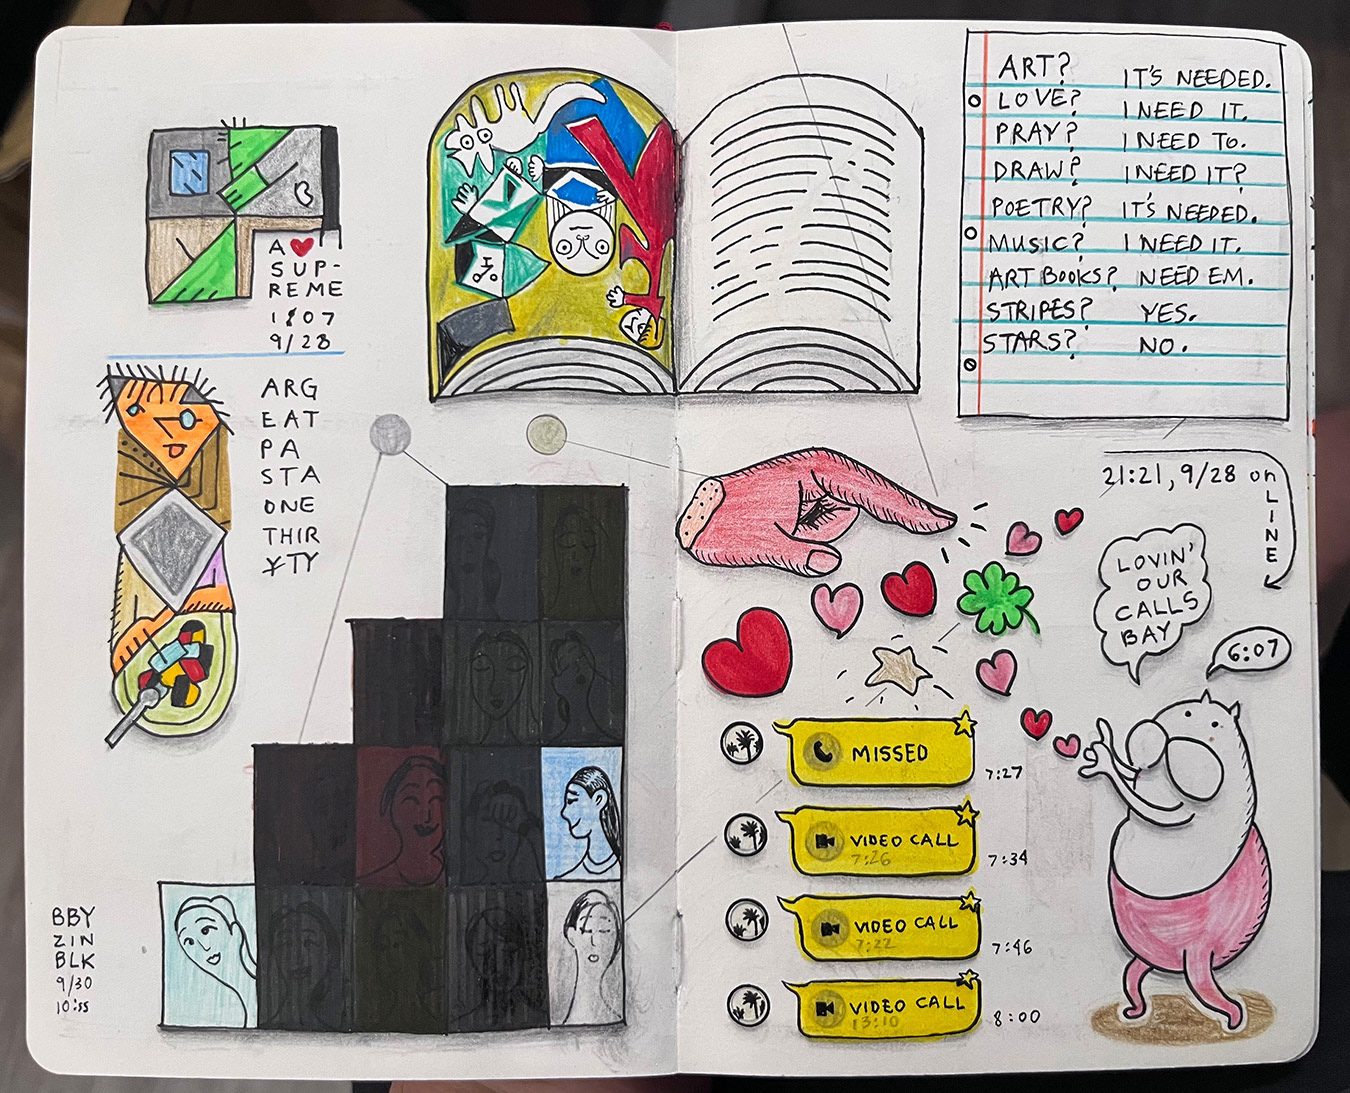 A ♥
SUP-
REME
1:07
9/28
ARG
EAT
PA
STA
ONE
THIR
TY
BBY
ZIN
BLK
9/30
10:55
ART? IT'S NEEDED.
LOVE? I NEED IT.
PRAY? I NEED TO.
DRAW? I NEED IT?
POETRY? IT'S NEEDED.
MUSIC? I NEED IT.
ART BOOKS? NEED EM.
STRIPES? YES.
STARS? NO.
21:21, 9/28 on
LINE
LOVIN'
OUR
CALLS
BAY
6:07
MISSED
7:27
VIDEO CALL
7:26
7:34
VIDEO CALL
7:22
7:46
VIDEO CALL
13:10
8:00